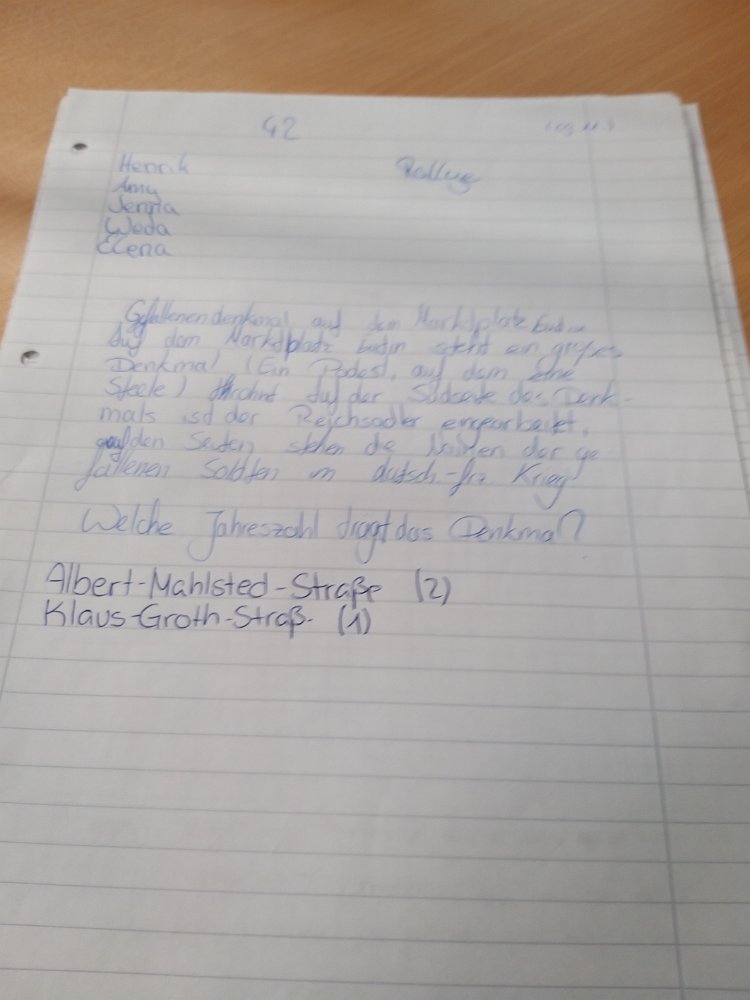 G2
Henrik
Rallye
Amy
Jenna
Weda
Elena
Gefallenendenkmal auf dem Marktplatz Eutin
Auf dem Marktplatz Eutin steht ein großes
Denkmal (Ein Podest, auf dem eine
Steele) thront Auf der Südseite des Denk-
mals ist der Reichsadler eingearbeitet,
auf den Seiten stehen die Namen der ge
fallenen Soldaten im deutsch-frz Krieg
Welche Jahreszahl trägt das Denkmal?
Albert-Mahlsted-Straße (2)
Klaus-Groth-Straß- (1)